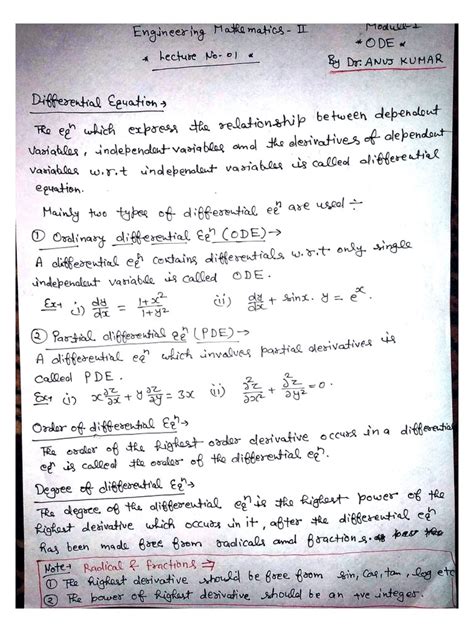 Engineering Mathematics - II
Module-1
* Lecture No-01 *
* ODE *
By Dr. ANUJ KUMAR
Differential Equation →
The eqⁿ which express the relationship between dependent
variables, independent variables and the derivatives of dependent
variables w.r.t independent variables is called differential
equation.
Mainly two types of differential eqⁿ are used ÷
① Ordinary differential Eqⁿ (ODE) →
A differential eqⁿ contains differentials w.r.t only single
independent variable is called ODE.
Ex→ i) dy/dx = 1+x²/1+y² (ii) dy/dx + sinx. y = eˣ.
② Partial differential eqⁿ (PDE) →
A differential eqⁿ which involves partial derivatives is
called PDE.
Ex→ (i) x ∂z/∂x + y ∂z/∂y = 3x (ii) ∂²z/∂x² + ∂²z/∂y² = 0.
Order of differential Eqⁿ →
The order of the highest order derivative occurs in a differential
eqⁿ is called the order of the differential eqⁿ.
Degree of differential Eqⁿ →
The degree of the differential eqⁿ is the highest power of the
highest derivative which occurs in it, after the differential eqⁿ
has been made free from radicals and fractions.
Note→ Radical & fractions →
① The highest derivative should be free from sin, cos, tan, log etc
② The power of highest derivative should be an +ve integer.